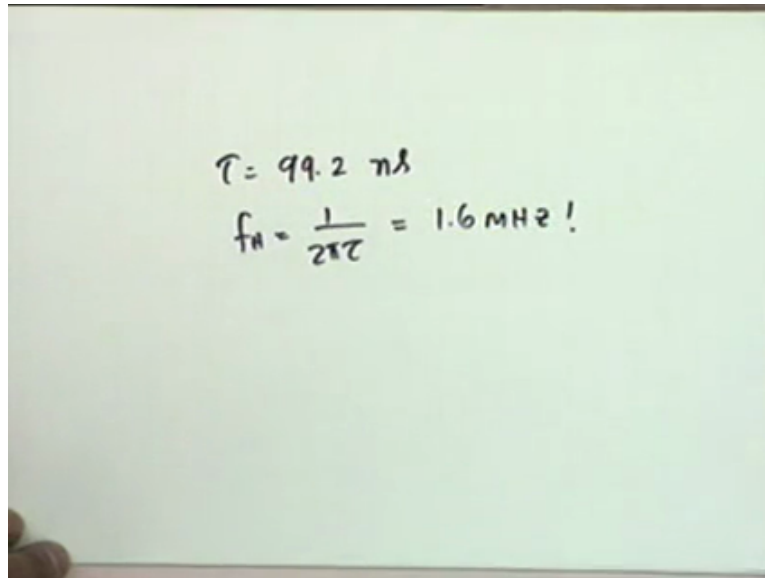 τ = 99.2 ns
fH = 1/2πτ = 1.6 MHz!